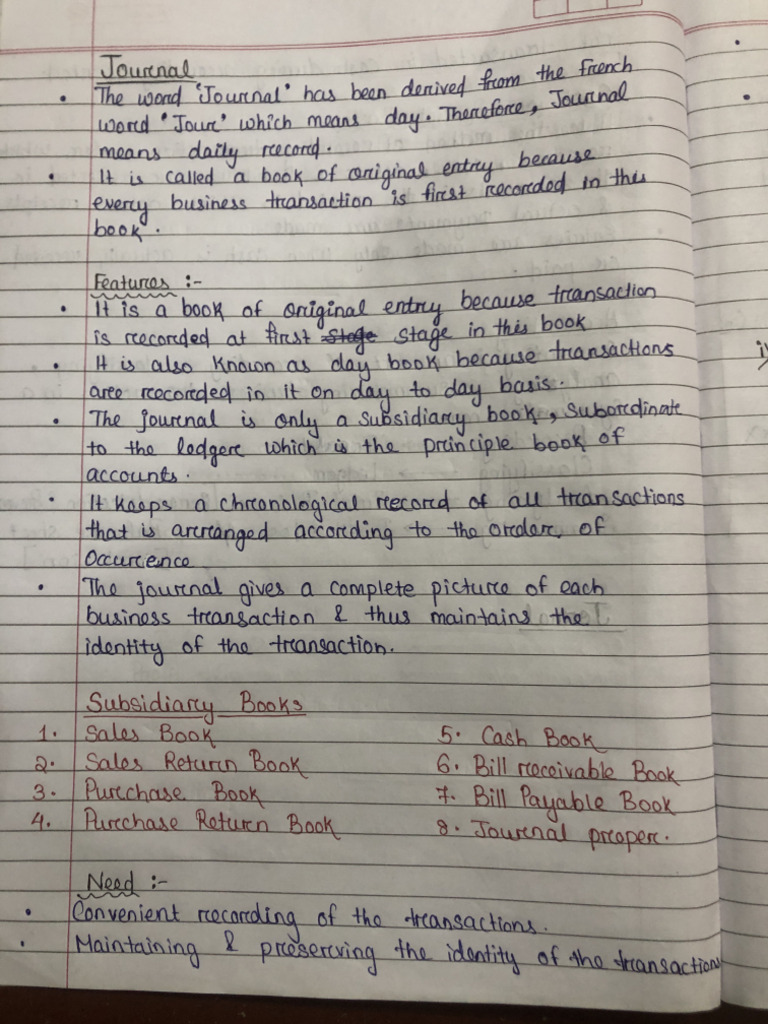 Journal
• The word 'Journal' has been derived from the French
word 'Jour' which means day. Therefore, Journal
means daily record.
• It is called a book of original entry because
every business transaction is first recorded in this
book.
Features :-
• It is a book of original entry because transaction
is recorded at first Stage stage in this book
• It is also known as day book because transactions
are recorded in it on day to day basis.
• The journal is only a subsidiary book, subordinate
to the ledger which is the principle book of
accounts.
• It keeps a chronological record of all transactions
that is arranged according to the order of
Occurience
• The journal gives a complete picture of each
business transaction & thus maintains the
identity of the transaction.
Subsidiary Books
1. Sales Book
2. Sales Return Book
3. Purchase Book
4. Purchase Return Book
5. Cash Book
6. Bill receivable Book
7. Bill Payable Book
8. Journal proper.
Need :-
• Convenient recording of the transactions.
• Maintaining & preserving the identity of the transactions